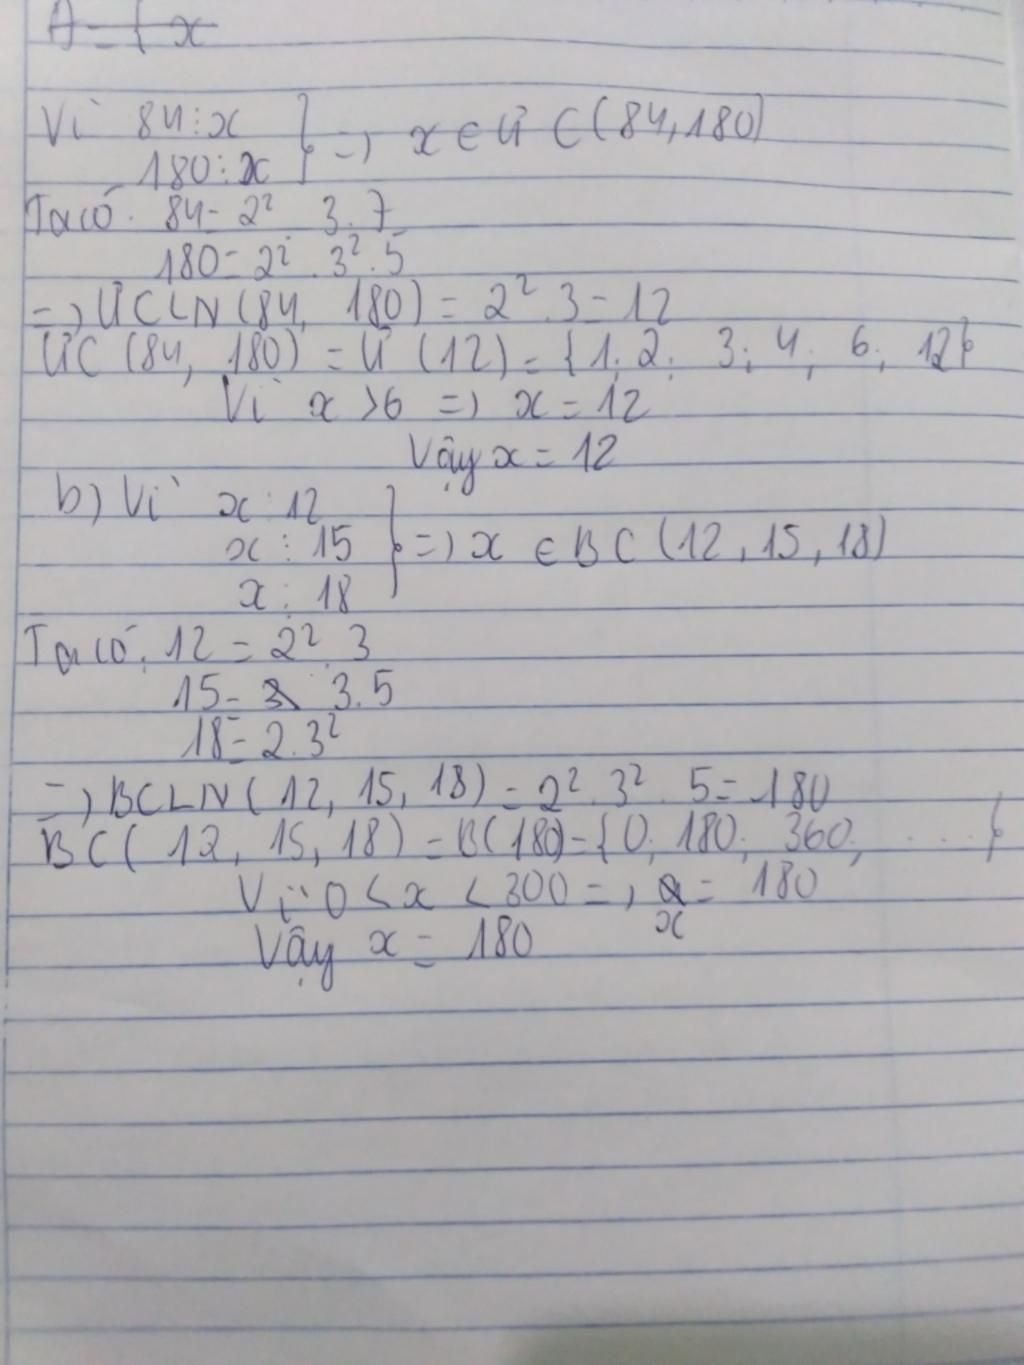 A = { x
Vì 84 ⋮ x
180 ⋮ x } => x ∈ ƯC (84, 180)
Ta có: 84 = 2² . 3 . 7
180 = 2² . 3² . 5
=> ƯCLN (84, 180) = 2² . 3 = 12
ƯC (84, 180) = Ư (12) = {1; 2; 3; 4; 6; 12}
Vì x > 6 => x = 12
Vậy x = 12
b) Vì x ⋮ 12
x ⋮ 15 } => x ∈ BC (12, 15, 18)
x ⋮ 18
Ta có: 12 = 2² . 3
15 = 3 . 5
18 = 2 . 3²
=> BCLN (12, 15, 18) = 2² . 3² . 5 = 180
BC (12, 15, 18) = B(180) = {0; 180; 360; ....}
Vì 0 < x < 300 => x = 180
Vậy x = 180